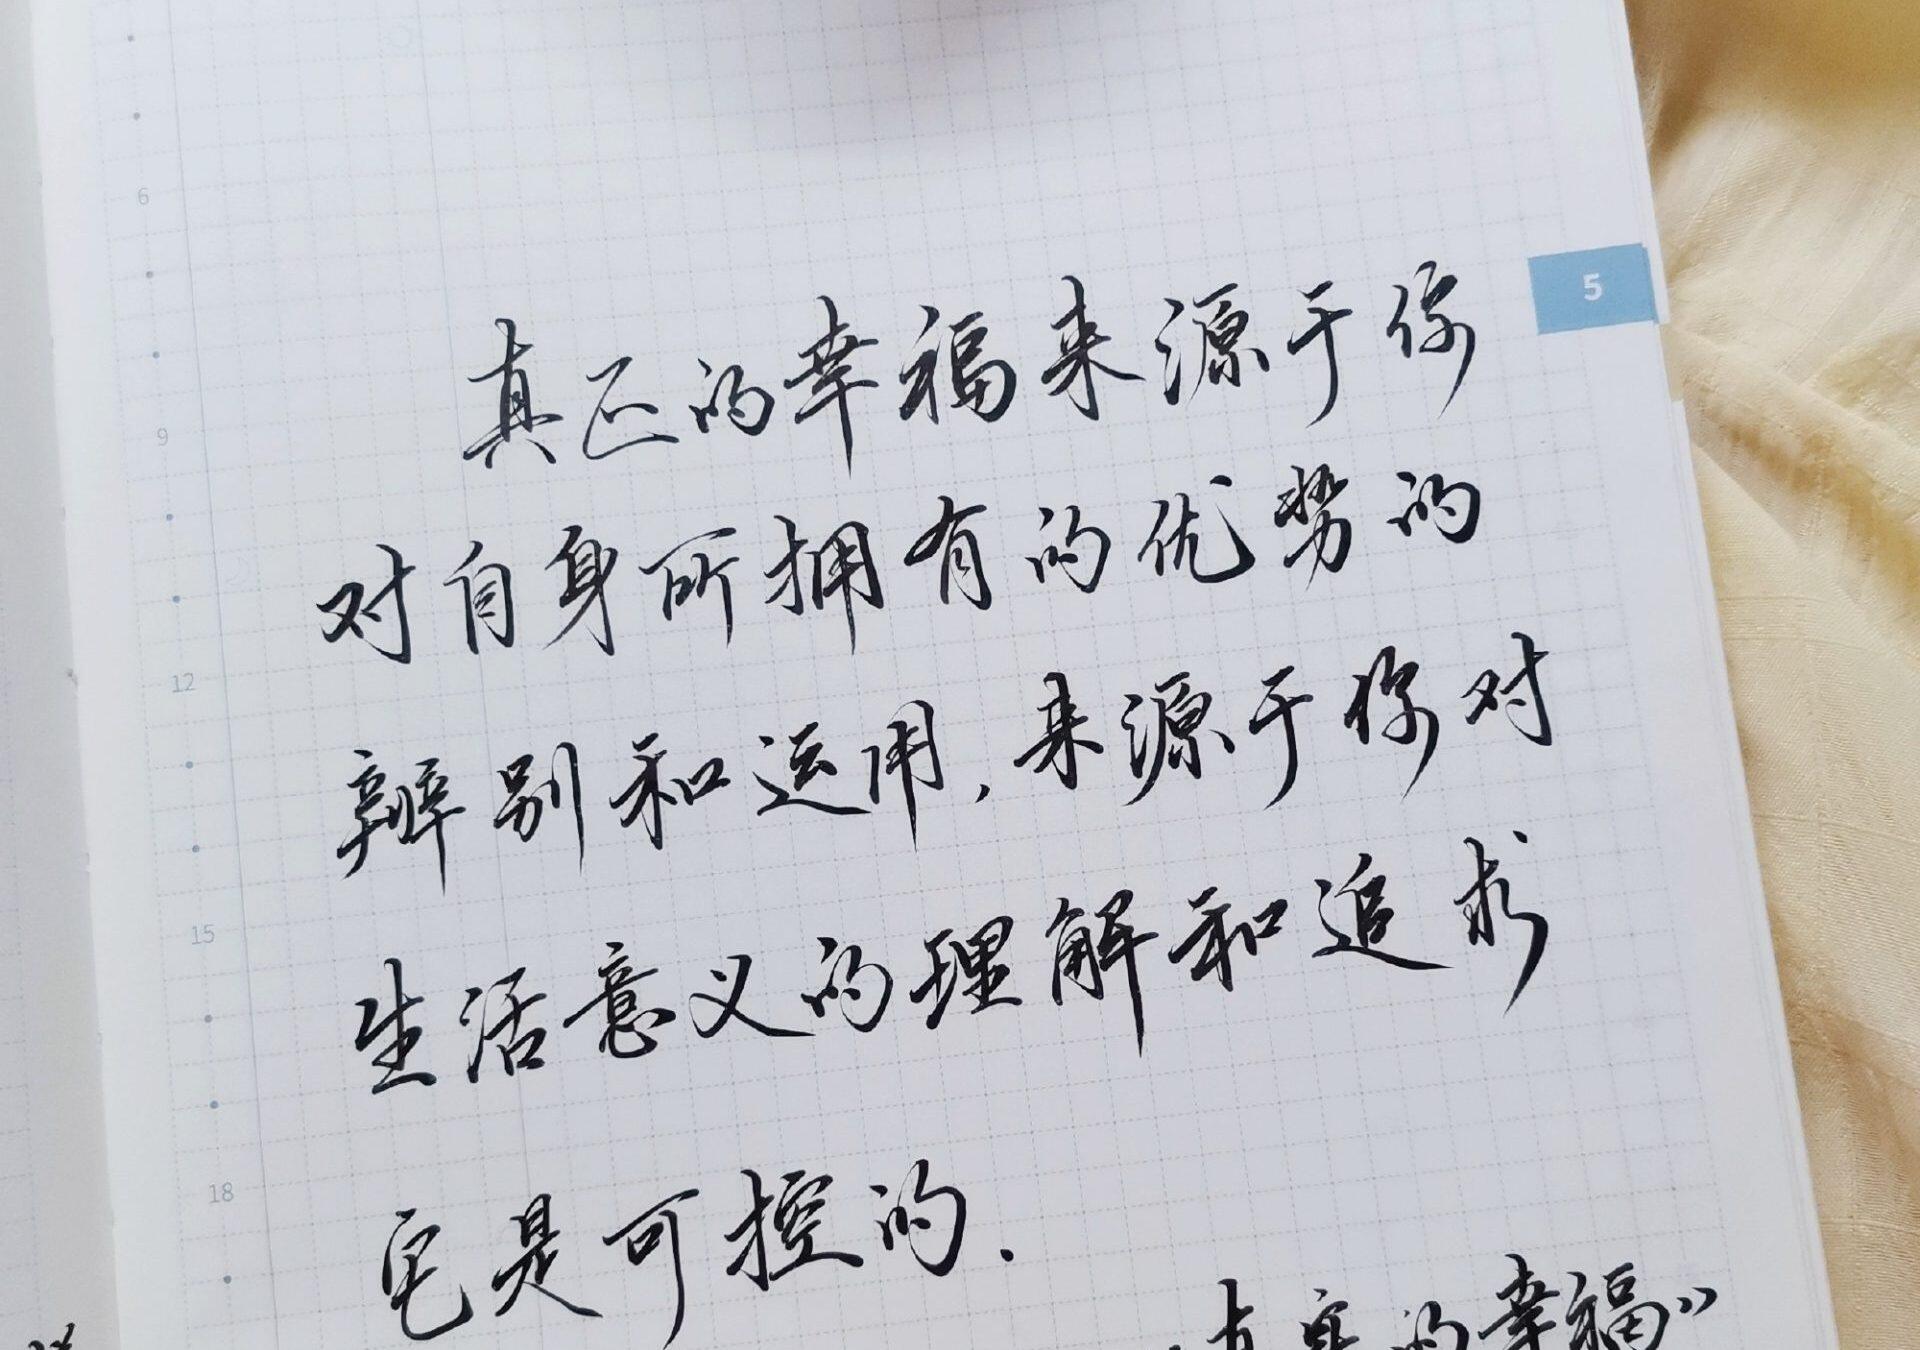 5
6
真正的幸福来源于你
9
对自身所拥有的优势的
12
辨别和运用,来源于你对
15
生活意义的理解和追求
18
它是可控的.
真实的幸福》